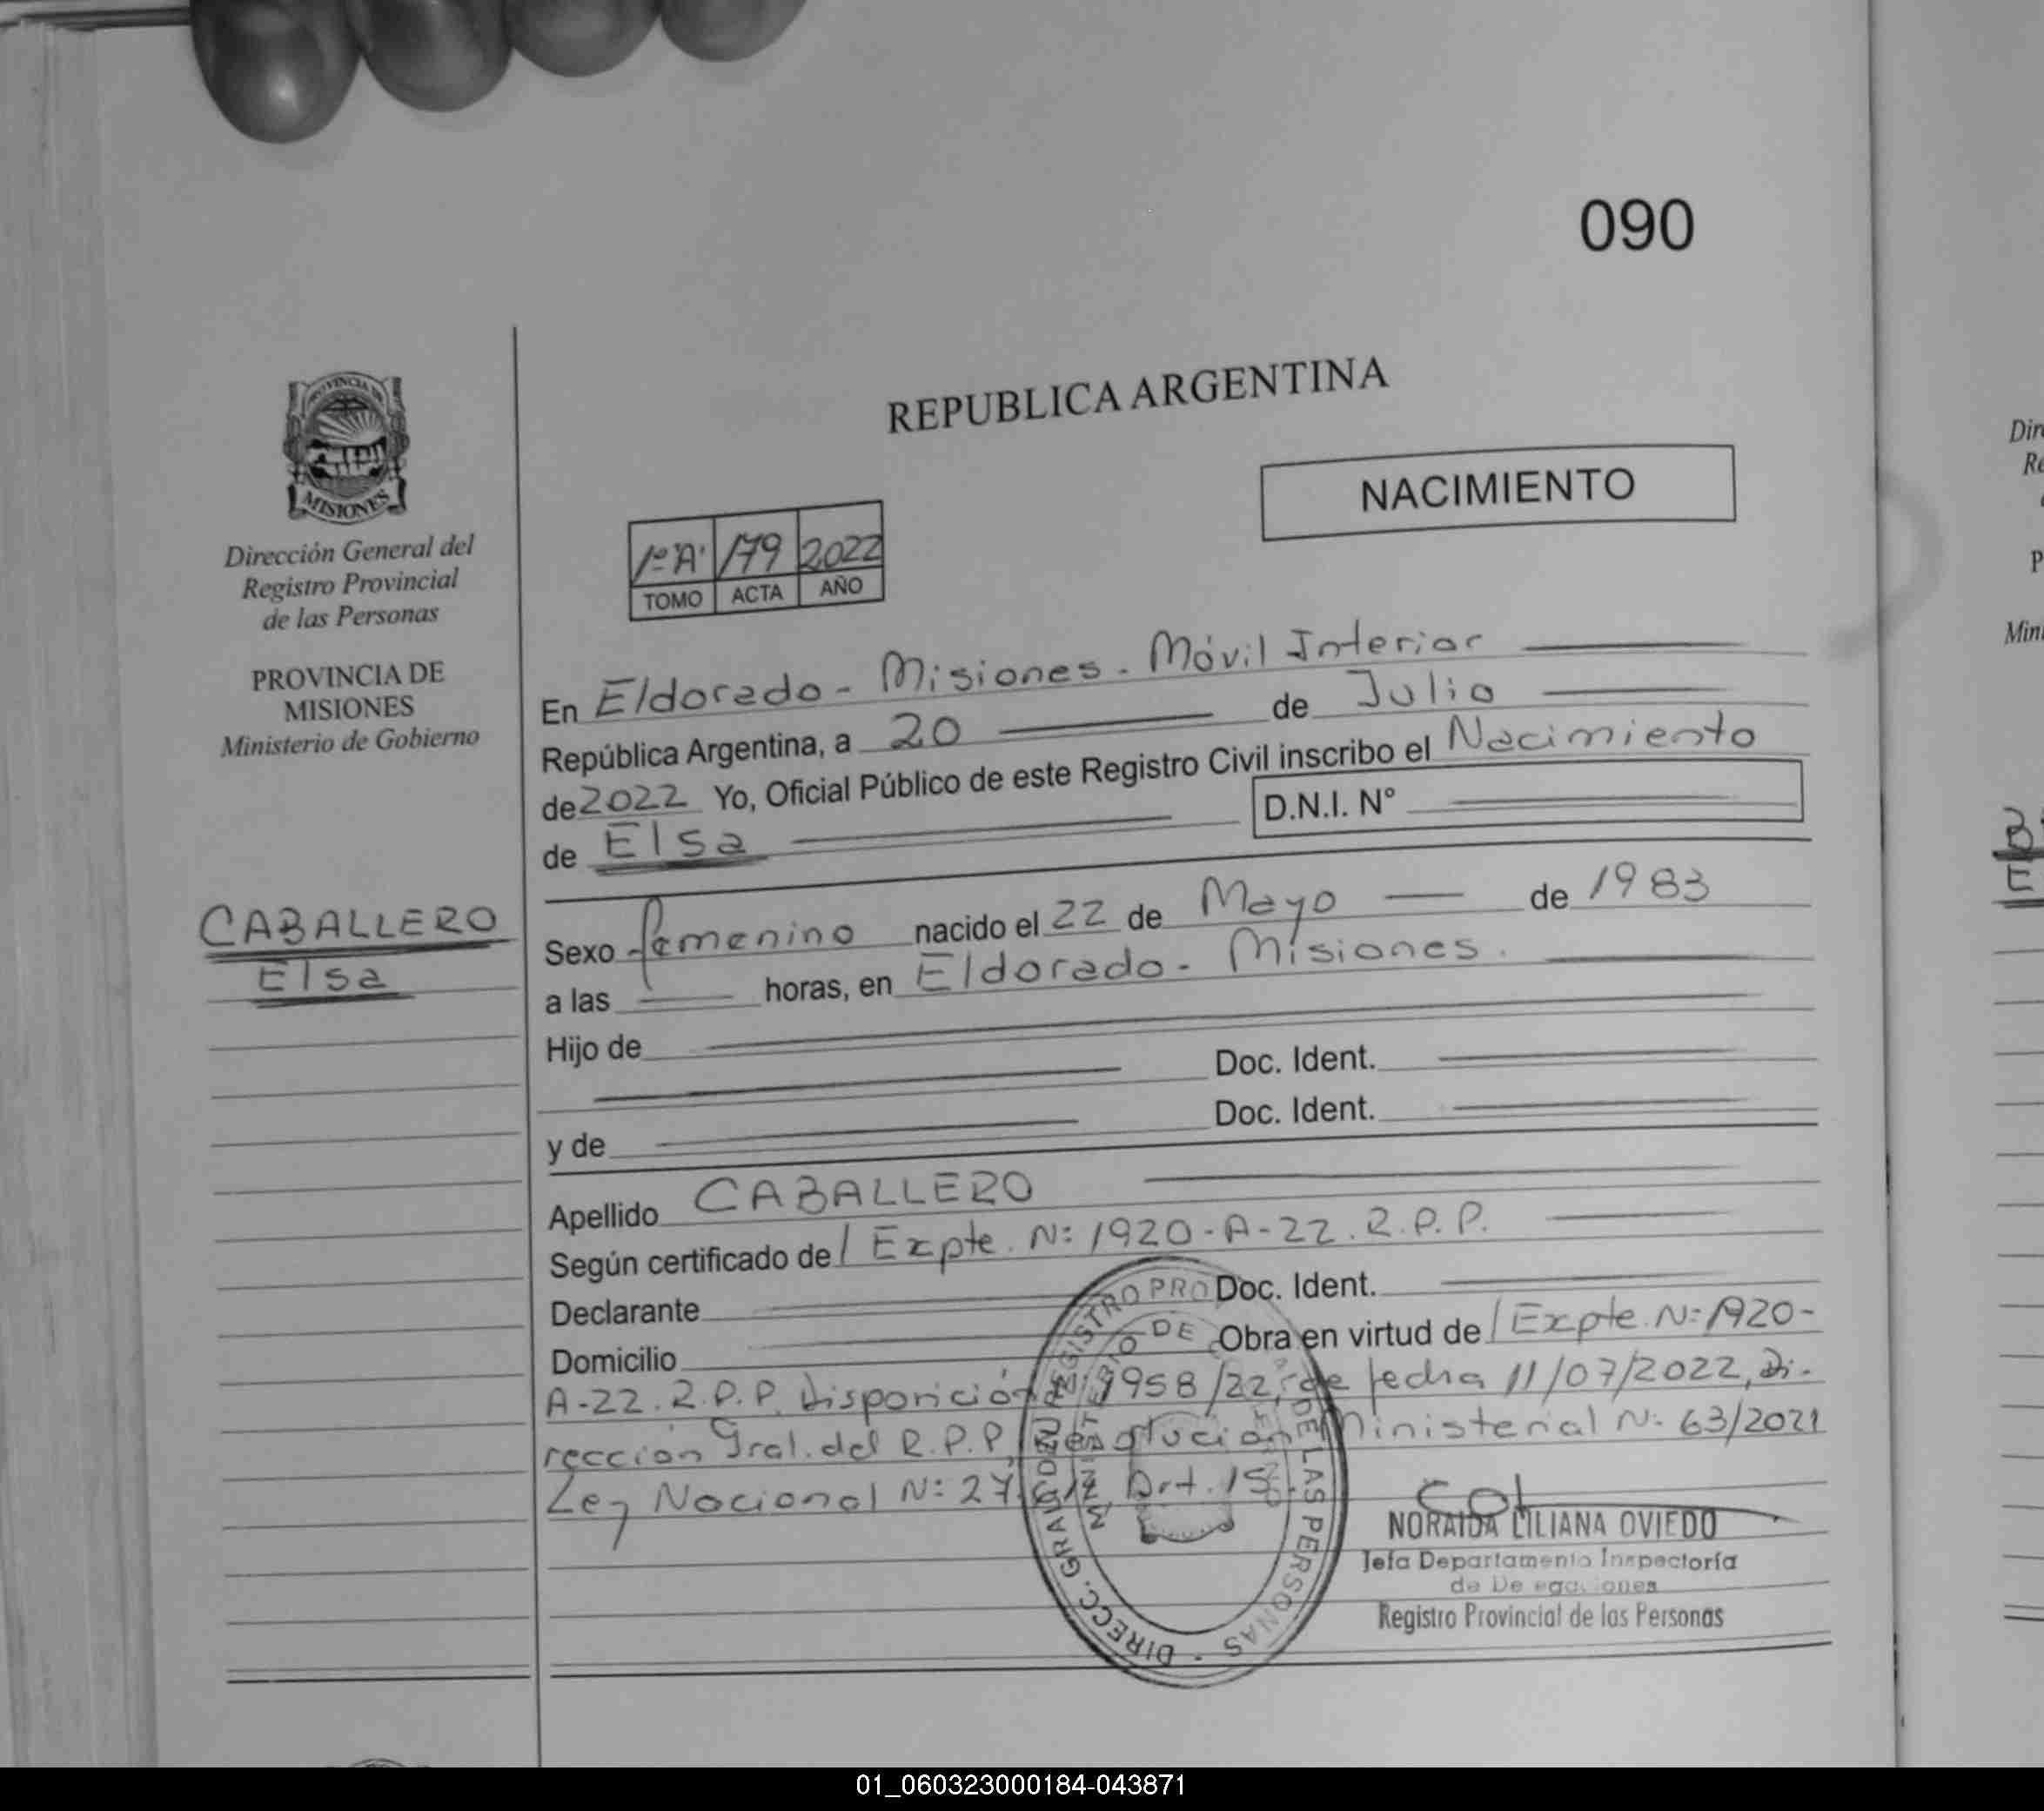 090
PROVINCIA DE
MISIONES
Dirección General del
Registro Provincial
de las Personas
PROVINCIA DE
MISIONES
Ministerio de Gobierno
CABALLERO
Elsa
REPUBLICA ARGENTINA
NACIMIENTO
1º "A" 179 2022
TOMO ACTA AÑO
En Eldorado - Misiones - Móvil Interior
República Argentina, a 20 de Julio
de 2022 Yo, Oficial Público de este Registro Civil inscribo el Nacimiento
de Elsa D.N.I. N°
Sexo femenino nacido el 22 de Mayo de 1983
a las horas, en Eldorado - Misiones.
Hijo de
Doc. Ident.
y de Doc. Ident.
Apellido CABALLERO
Según certificado de / Expte. Nº 1920-A-22. R.P.P.
Declarante Doc. Ident.
Domicilio Obra en virtud de / Expte. Nº 1920-
A-22. R.P.P. Disposición Nº 1958/22, de fecha 11/07/2022, Di-
rección Gral. del R.P.P, Resolución Ministerial Nº 63/2021
Ley Nacional Nº 27.612 Art. 15º.
DIRECC. GRAL. DEL REGISTRO PRO DE LAS PERSONAS -
MINISTERIO DE
NORAIDA LILIANA OVIEDO
Jefa Departamento Inspectoría
de Delegaciones
Registro Provincial de las Personas
Dir
Re
P
Mini
E
01_060323000184-043871